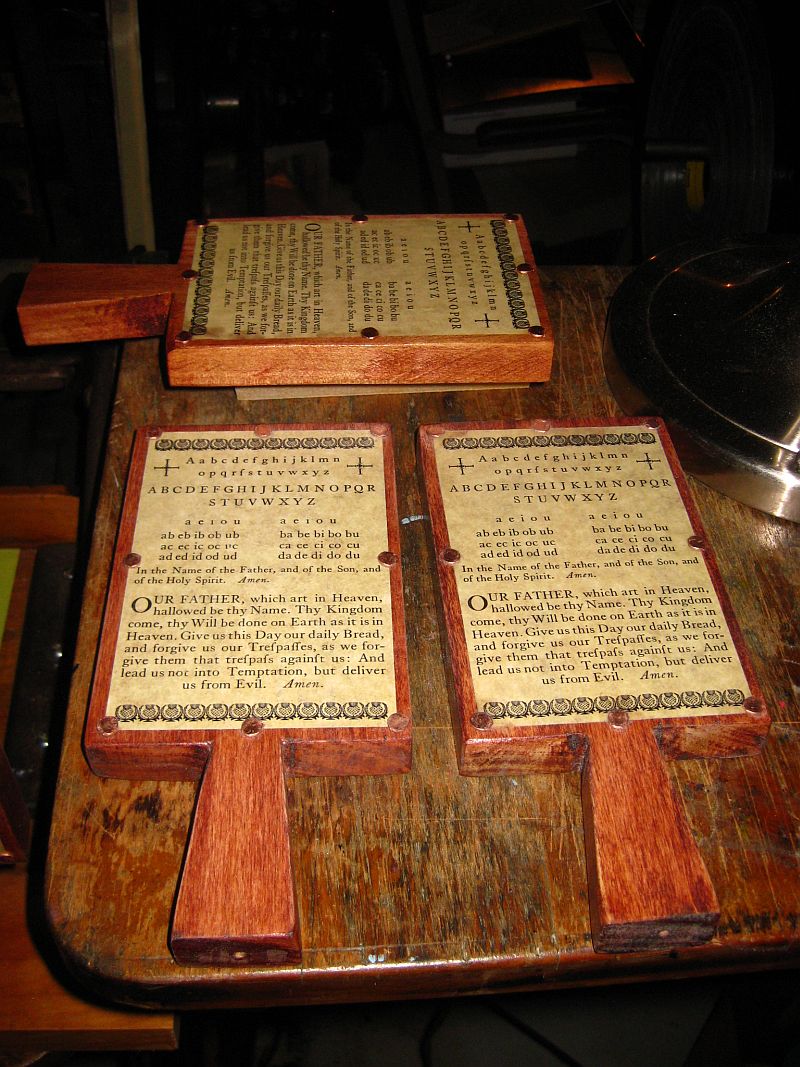 A a b c d e f g h i j k l m n
o p q r ſ s t u v w x y z
A B C D E F G H I J K L M N O P Q R
S T U V W X Y Z
a e i o u a e i o u
ab eb ib ob ub ba be bi bo bu
ac ec ic oc uc ca ce ci co cu
ad ed id od ud da de di do du
In the Name of the Father, and of the Son, and
of the Holy Spirit. Amen.
OUR FATHER, which art in Heaven,
hallowed be thy Name. Thy Kingdom
come, thy Will be done on Earth as it is in
Heaven. Give us this Day our daily Bread,
and forgive us our Treſpaſſes, as we for-
give them that treſpaſs againſt us: And
lead us not into Temptation, but deliver
us from Evil. Amen.
A a b c d e f g h i j k l m n
o p q r ſ s t u v w x y z
A B C D E F G H I J K L M N O P Q R
S T U V W X Y Z
a e i o u a e i o u
ab eb ib ob ub ba be bi bo bu
ac ec ic oc uc ca ce ci co cu
ad ed id od ud da de di do du
In the Name of the Father, and of the Son, and
of the Holy Spirit. Amen.
OUR FATHER, which art in Heaven,
hallowed be thy Name. Thy Kingdom
come, thy Will be done on Earth as it is in
Heaven. Give us this Day our daily Bread,
and forgive us our Treſpaſſes, as we for-
give them that treſpaſs againſt us: And
lead us not into Temptation, but deliver
us from Evil. Amen.
A a b c d e f g h i j k l m n
o p q r ſ s t u v w x y z
A B C D E F G H I J K L M N O P Q R
S T U V W X Y Z
a e i o u a e i o u
ab eb ib ob ub ba be bi bo bu
ac ec ic oc uc ca ce ci co cu
ad ed id od ud da de di do du
In the Name of the Father, and of the Son, and
of the Holy Spirit. Amen.
OUR FATHER, which art in Heaven,
hallowed be thy Name. Thy Kingdom
come, thy Will be done on Earth as it is in
Heaven. Give us this Day our daily Bread,
and forgive us our Treſpaſſes, as we for-
give them that treſpaſs againſt us: And
lead us not into Temptation, but deliver
us from Evil. Amen.